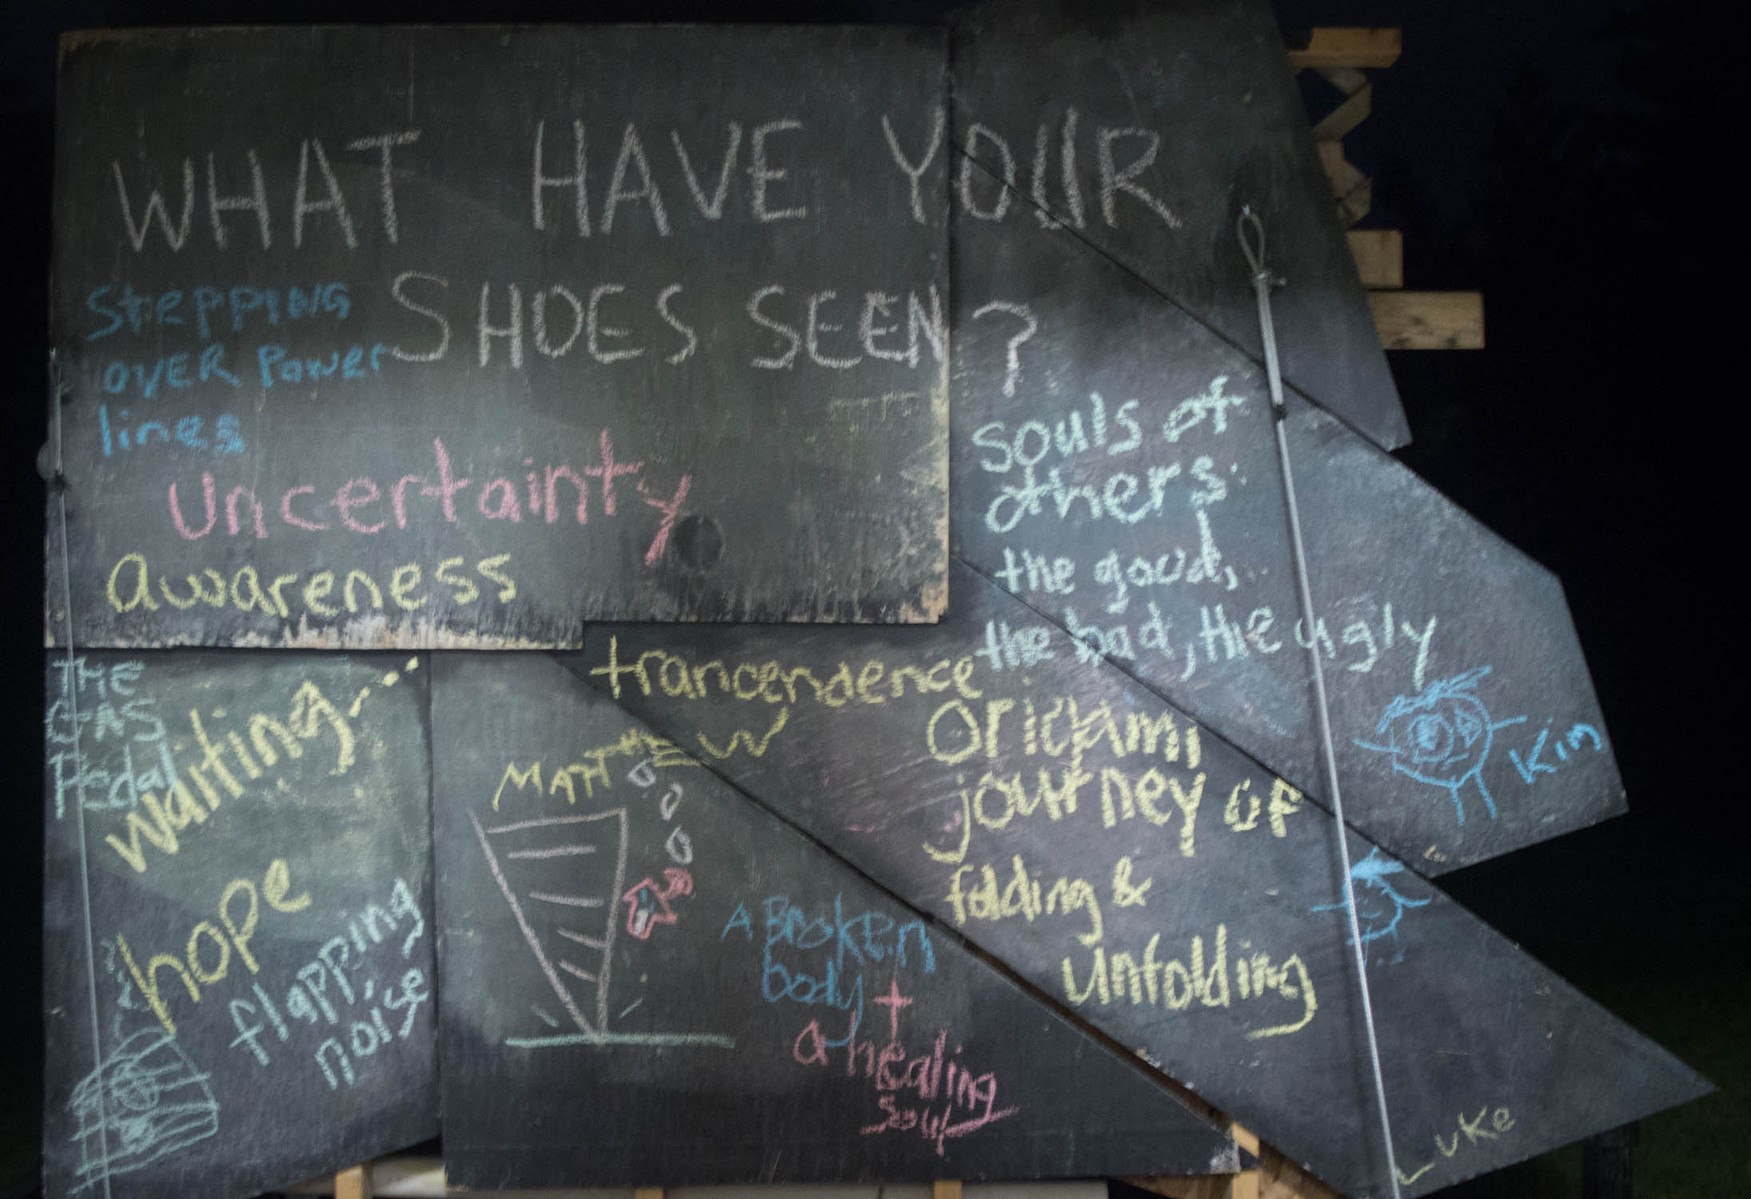 WHAT HAVE YOUR
SHOES SEEN?
Stepping
OVER Power
lines
Uncertainty
awareness
souls of
others:
the good,
the bad, the ugly
THE
GAS
Pedal
waiting...
hope
flapping
noise
trancendence
MATTHEW
Origami
journey of
folding &
Unfolding
A Broken
body
+
a healing
soul
Kim
LUKe